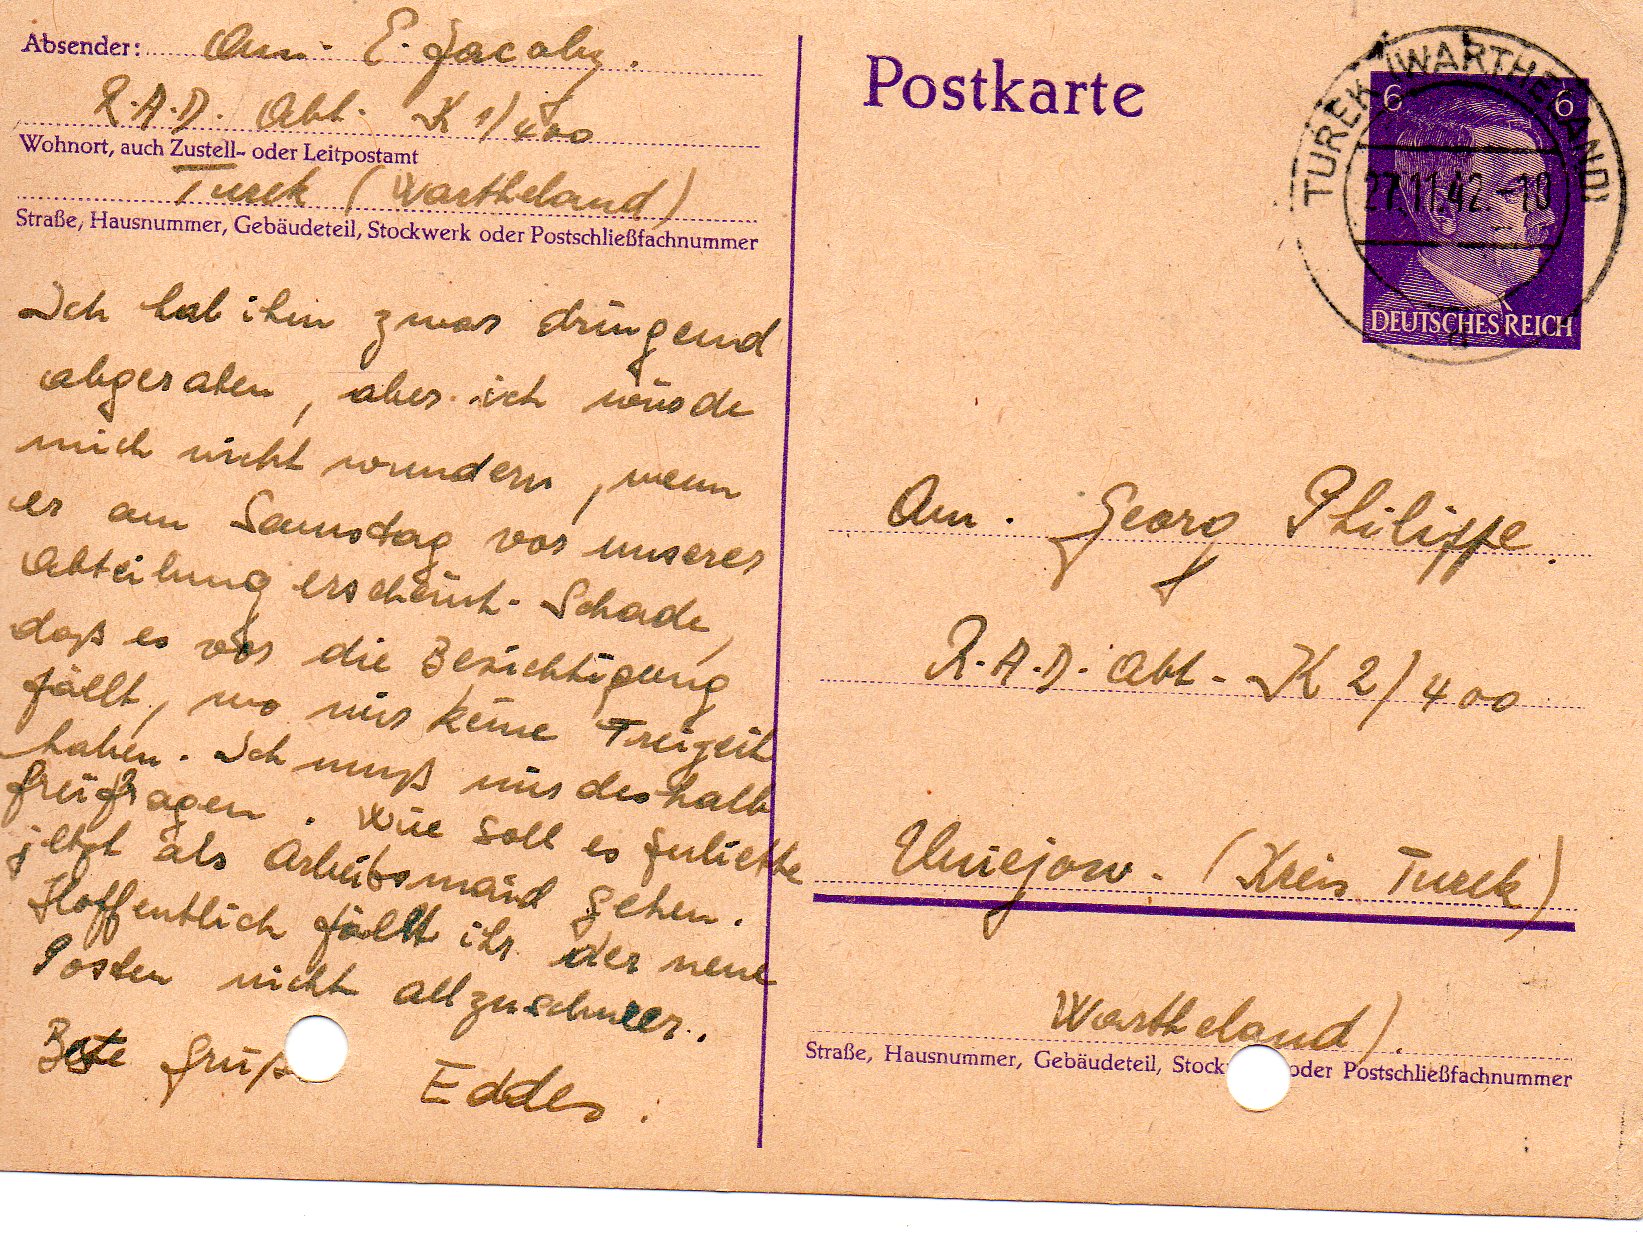 Absender: Am. E. Jacoby.
R.A.D. Abt. K 1/400
Wohnort, auch Zustell- oder Leitpostamt
Turek (Wartheland)
Straße, Hausnummer, Gebäudeteil, Stockwerk oder Postschließfachnummer
Ich hab ihm zwar dringend
abgeraten, aber ich würde
mich nicht wundern, wenn
er am Samstag vor unserer
Abteilung erscheint. Schade,
daß es vor die Besichtigung
fällt, wo wir keine Freizeit
haben. Ich muß mir deshalb
freifragen. Wie soll es Juliette
jetzt als Arbeitsmaid gehen.
Hoffentlich fällt ihr der neue
Posten nicht allzuschwer.
Beste Grüße
Eddes.
Postkarte
TUREK (WARTHELAND)
27.11.42.-10
a
6 6
DEUTSCHES REICH
Am. Georg Philippe.
R.A.D. Abt. K 2/400
Uniejow. (Kreis Turek)
Wartheland).
Straße, Hausnummer, Gebäudeteil, Stock oder Postschließfachnummer